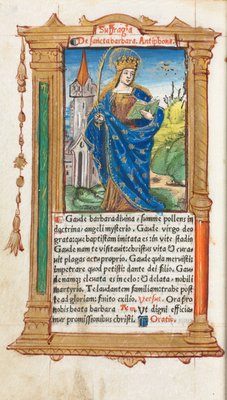 Suffragia
De sancta barbara. Antiphona.
Gaude barbara diuina e summe pollens in
doctrina: angeli mysterio. Gaude virgo deo
grata: que baptistam imitata es: in vite stadio
Gaude nam te visitauit: christus vita & curas
uit plagas actu proprio. Gaude quia meruisti:
impetrare quod petisti: dante dei filio. Gaus
de nāmq; eleuata es in celo: & delata nobili
martyrio. Te laudantem familiam: trahe post
te ad gloriam: finito exilio. Versus. Ora pro
nobis beata barbara Rm. Ut digni efficias
mur promissionibus christi. Oratio.